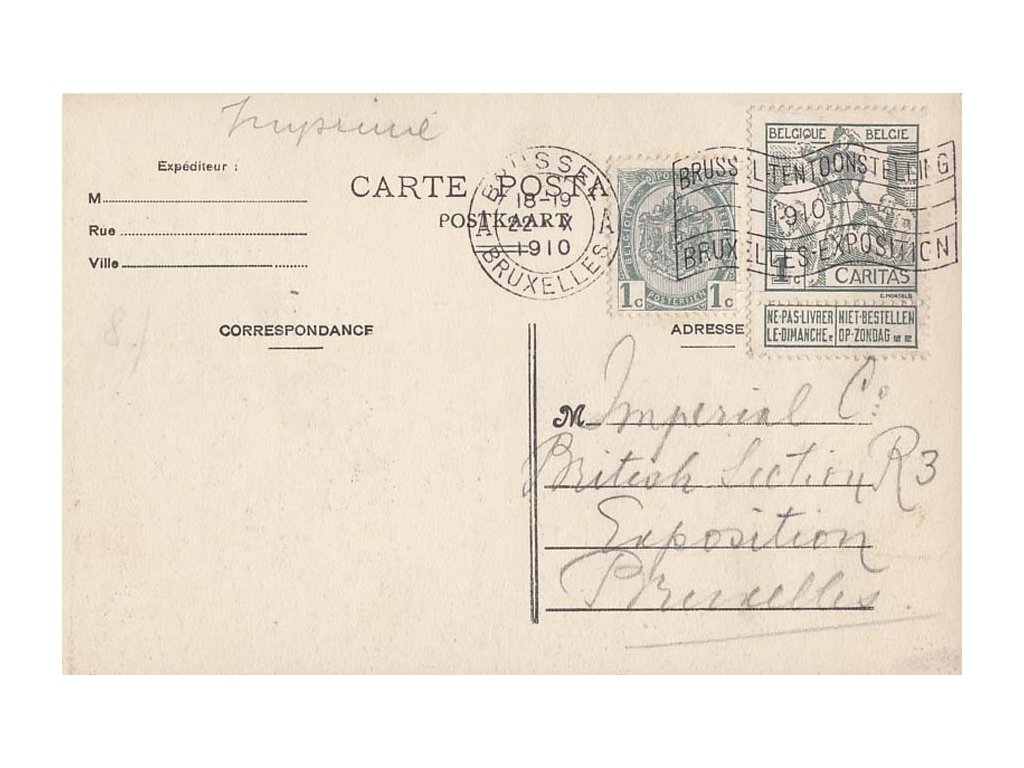 Imprimé
Expéditeur :
M
Rue
Ville
CARTE POSTA
POSTKAART
BRUSSEL
18-19
A 22 X A
1910
BRUXELLES
BELGIQUE BELGIE
POSTERIJEN
1c 1c
BRUSSEL-TENTOONSTELLING
1910
BRUXELLES-EXPOSITION
1c CARITAS
NE·PAS·LIVRER NIET·BESTELLEN
LE·DIMANCHE OP·ZONDAG
CORRESPONDANCE
ADRESSE
M Imperial Co
British Section R3
Exposition
Bruxelles.